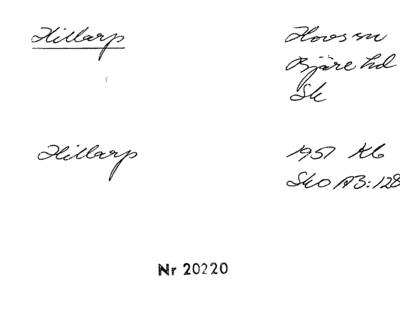 Hillarp
Hovs sn
Bjäre hd
Sk
Hillarp
1951 Kb
SkO AB:128
Nr 20220